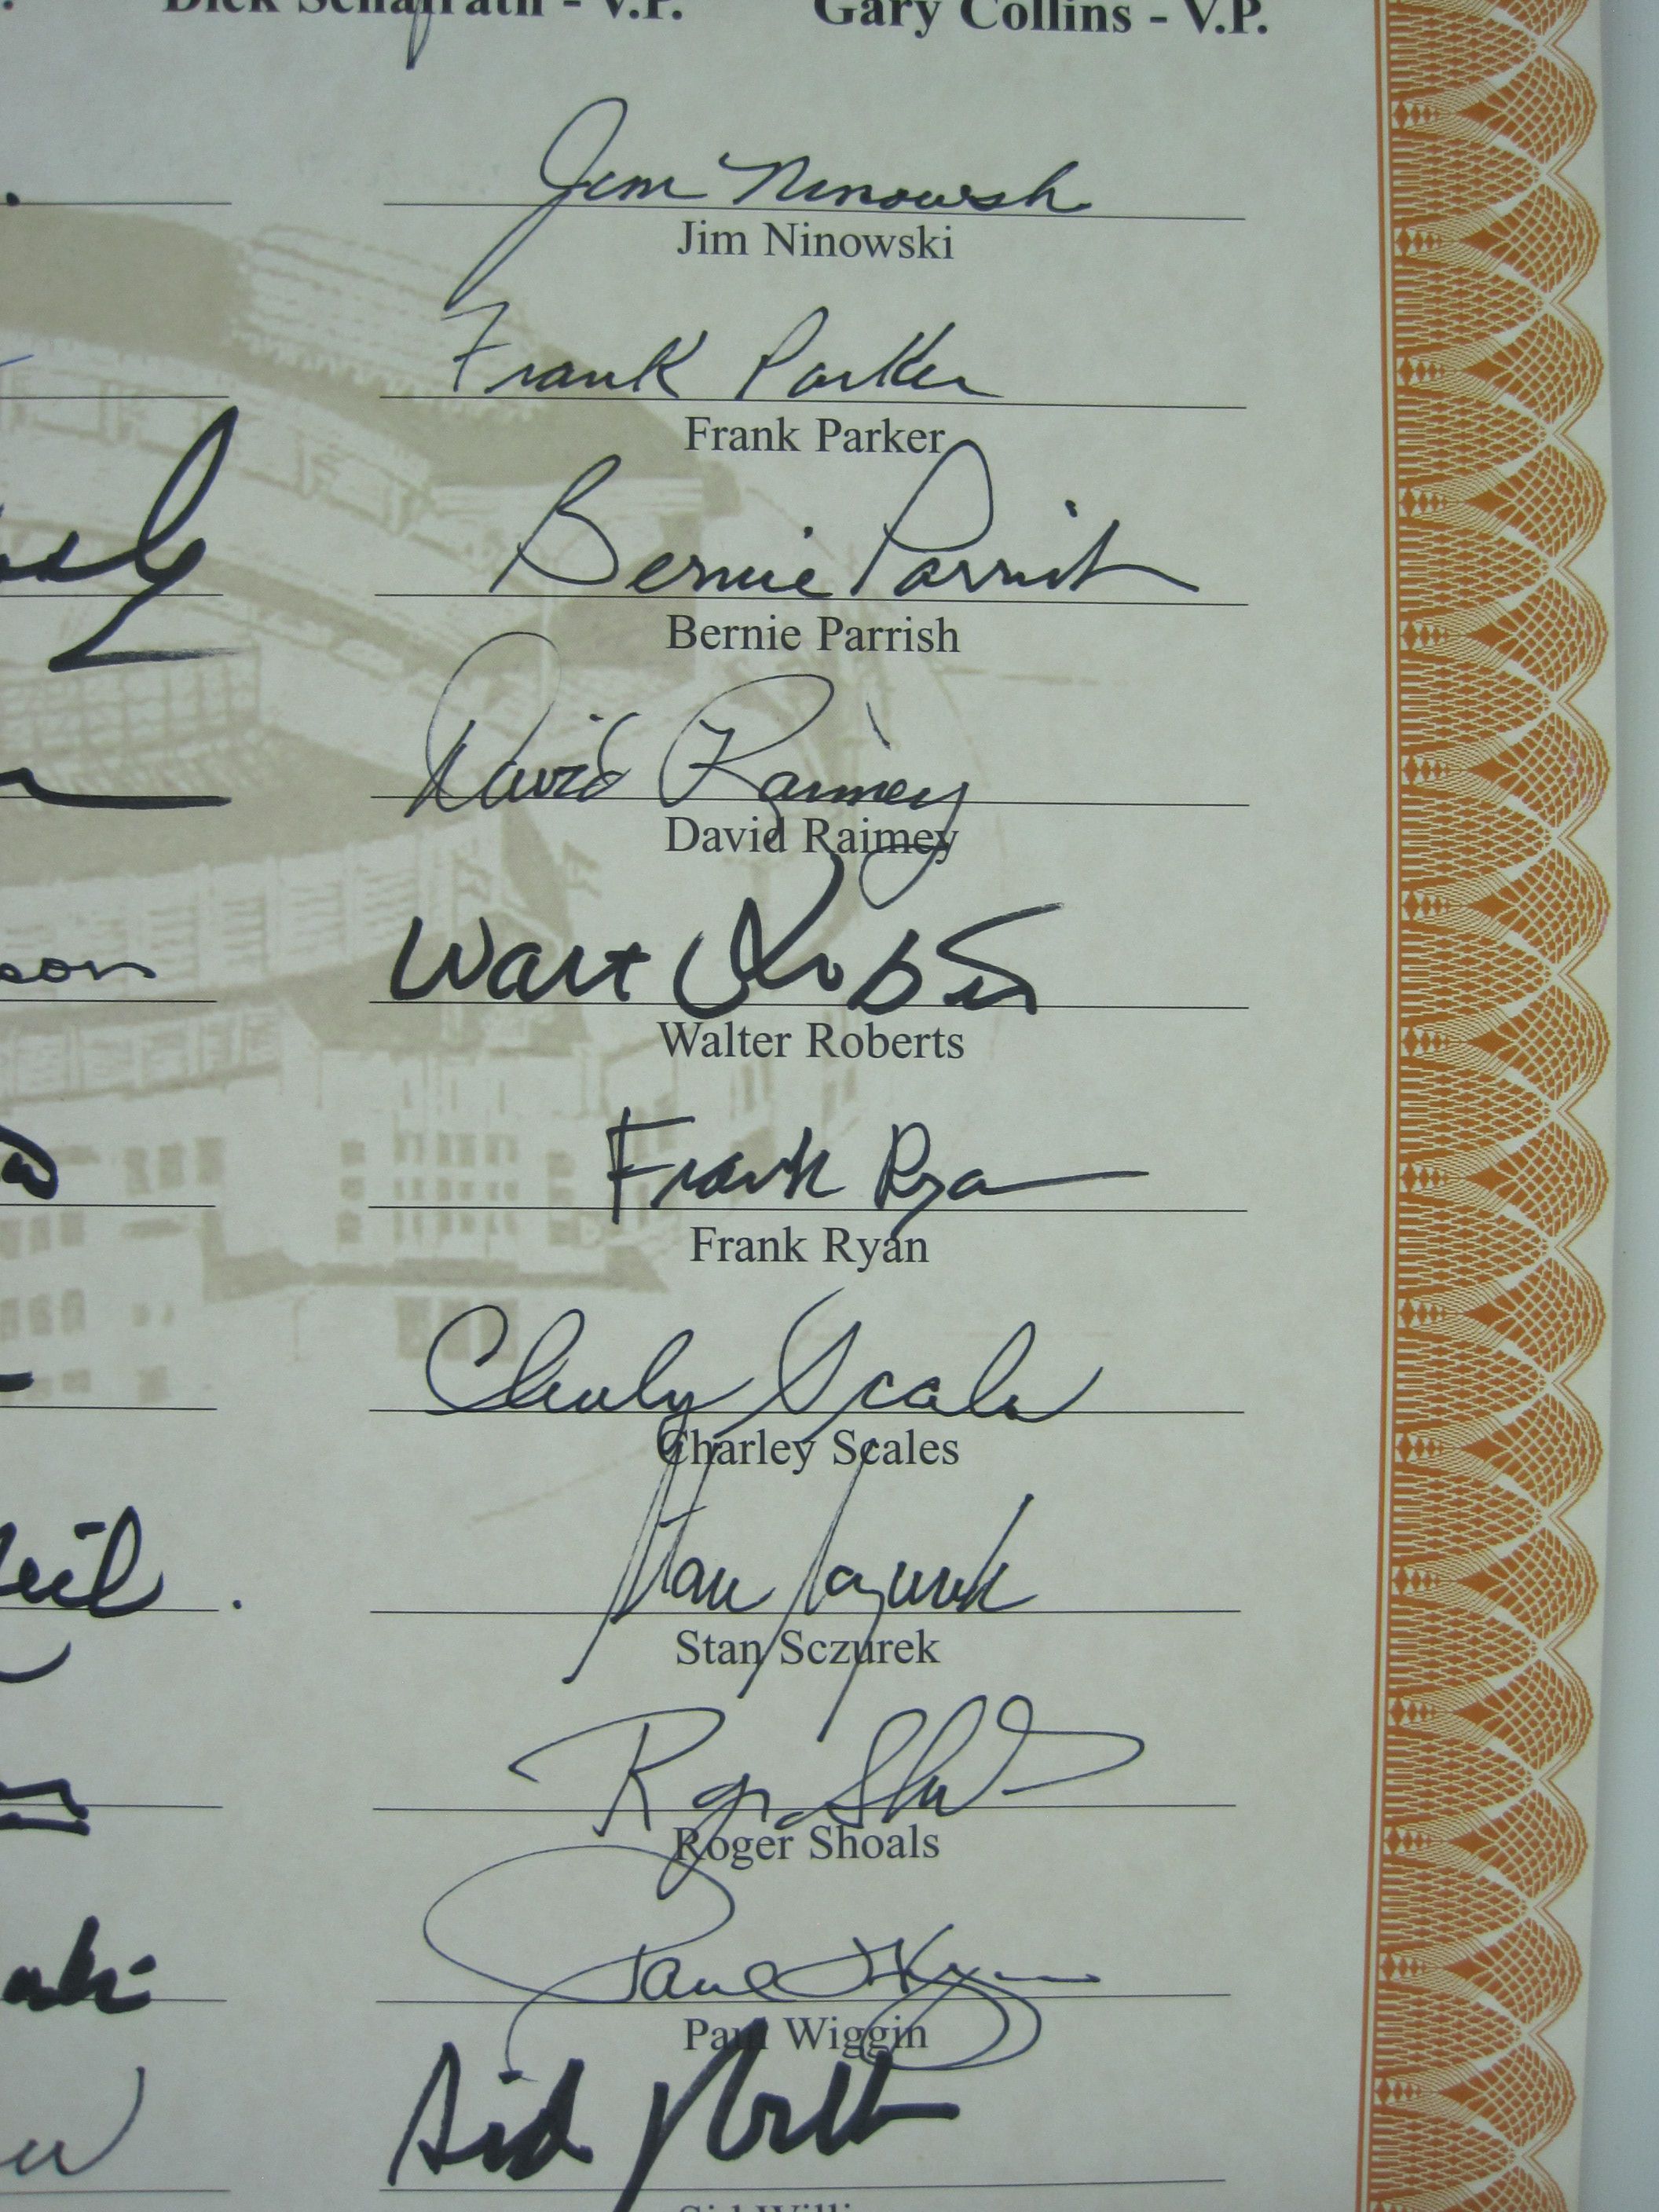 Dick Schafrath - V.P. Gary Collins - V.P.
Jim Ninowski
Jim Ninowski
Frank Parker
Frank Parker
Bernie Parrish
Bernie Parrish
David Raimey
David Raimey
Walt Roberts
Walter Roberts
Frank Ryan
Frank Ryan
Charley Scales
Charley Scales
Stan Sczurek
Stan Sczurek
Roger Shoals
Roger Shoals
Paul Wiggin
Paul Wiggin
Sid
Sid Willi